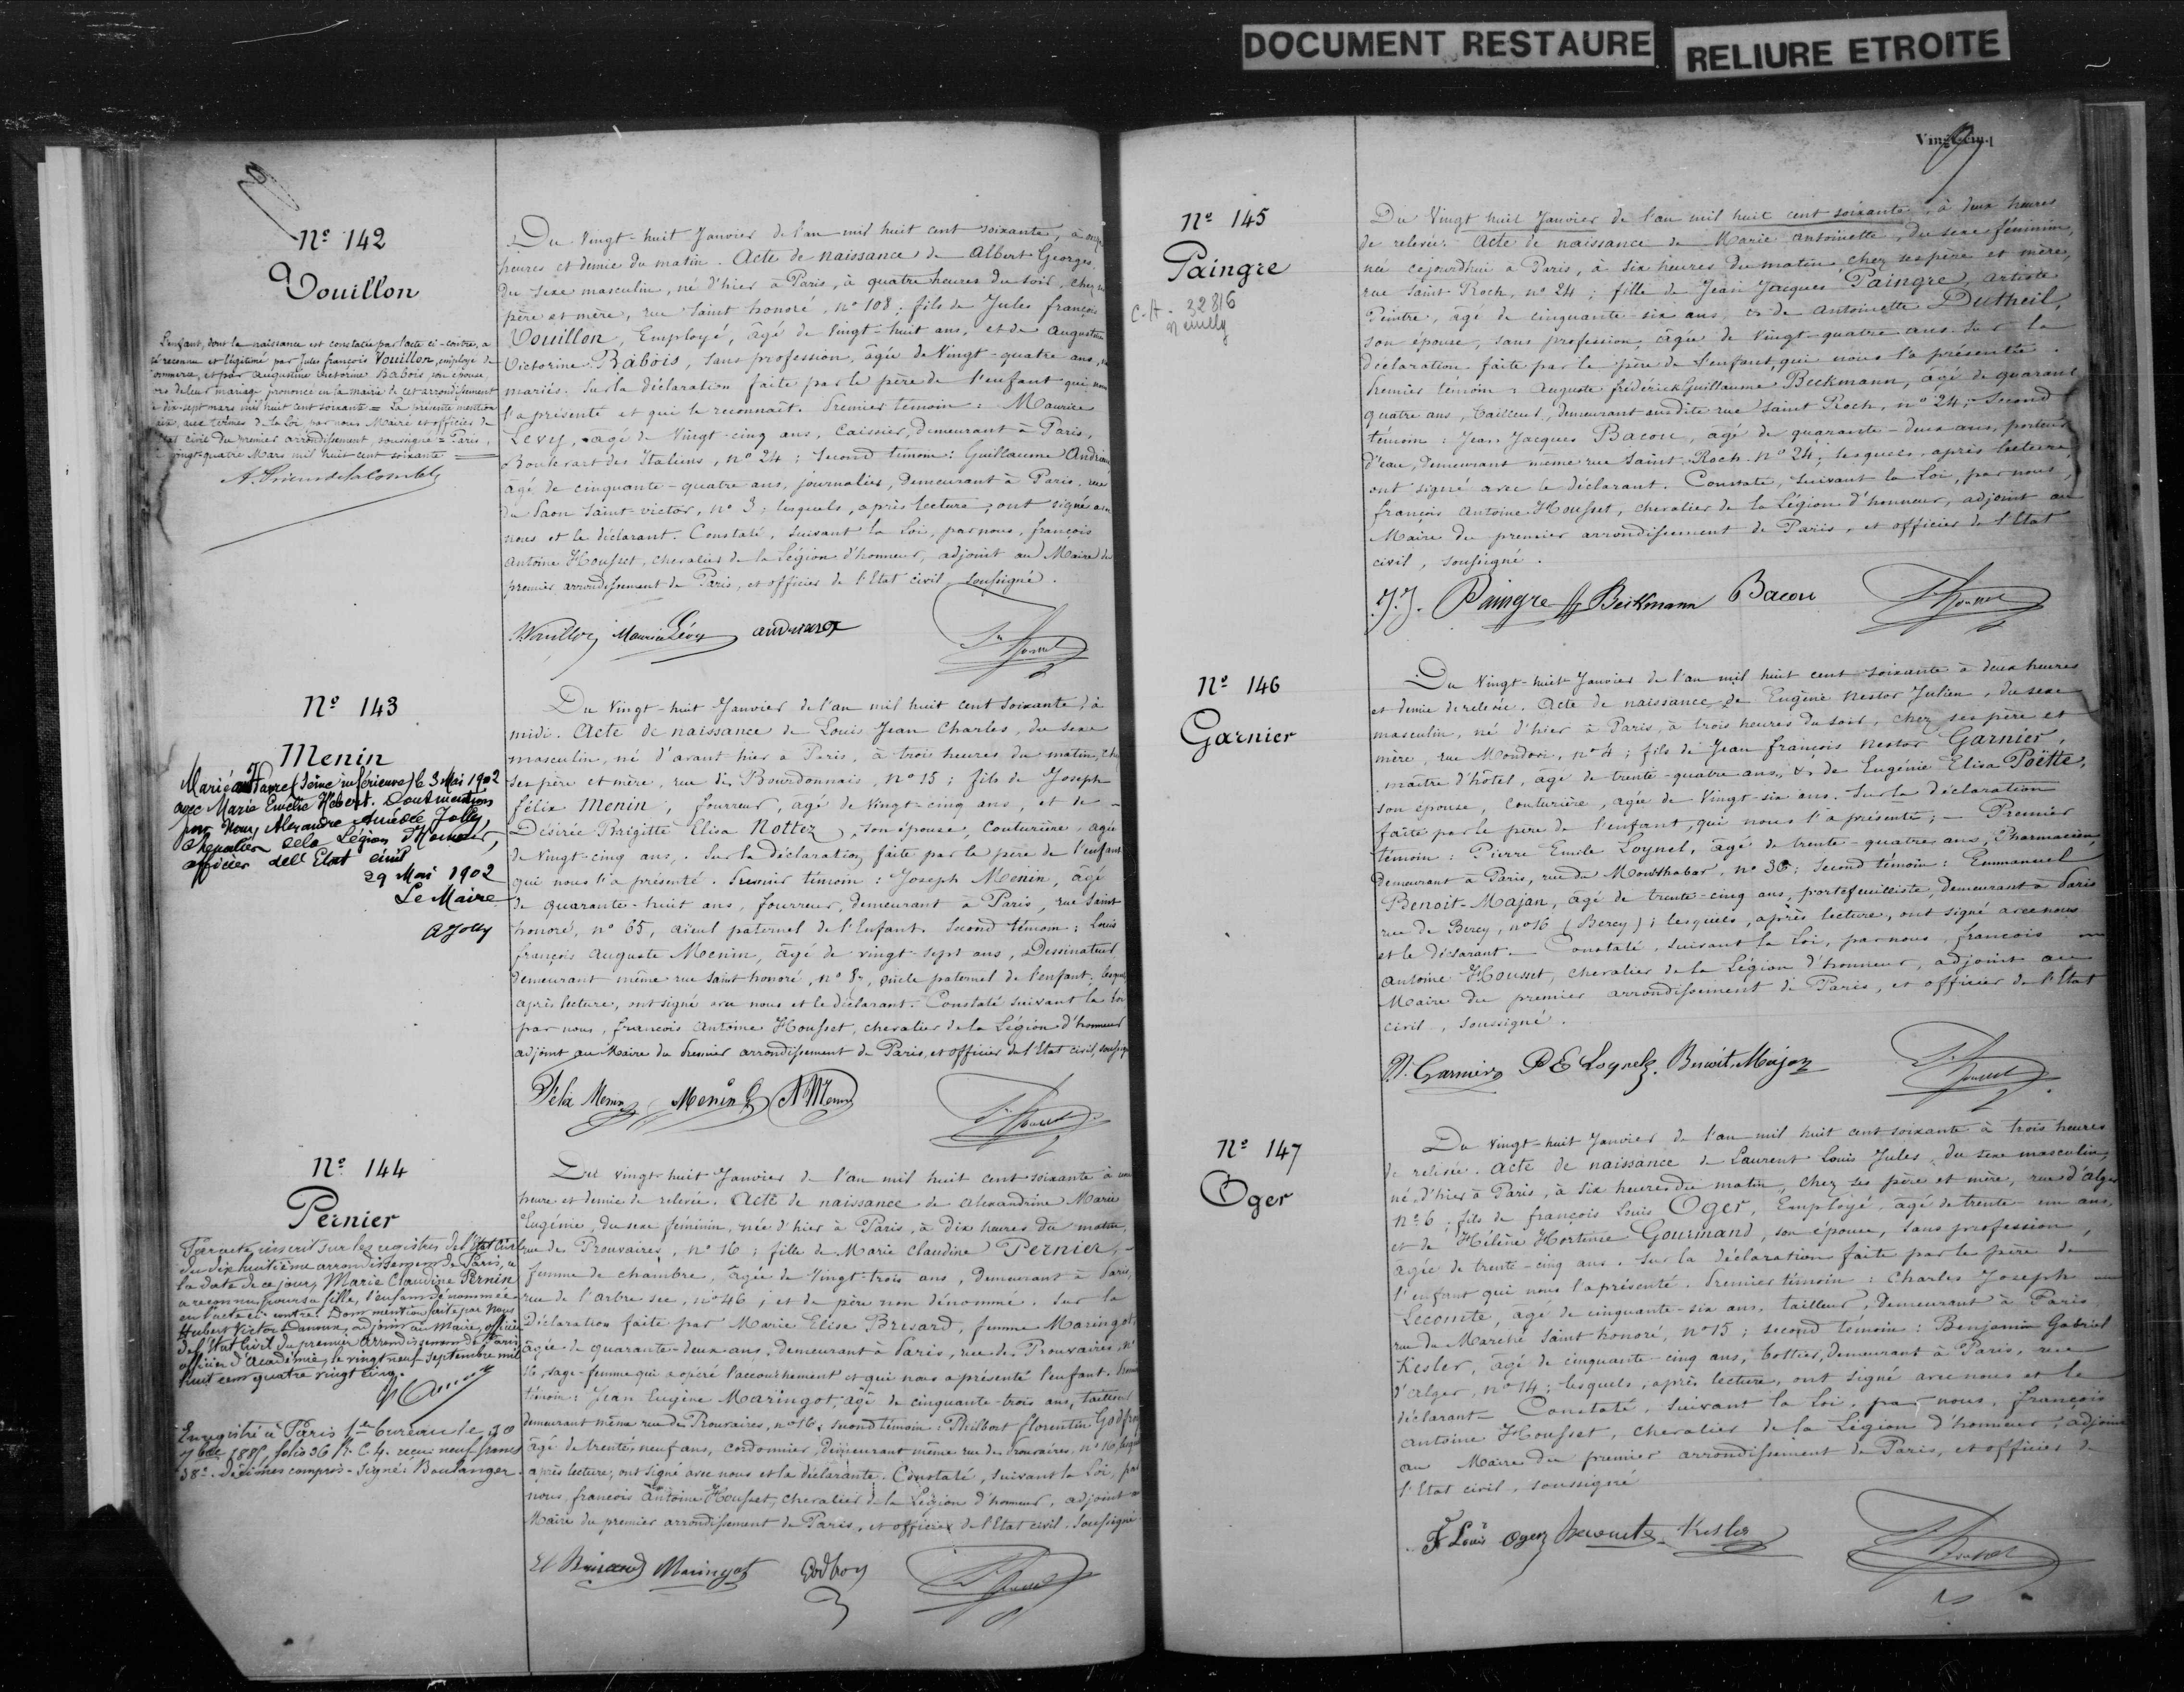 DOCUMENT RESTAURE
RELIURE ETROITE
Nº 142
Vouillon
L'enfant, dont la naissance est constatée par l'acte ci-contre, a
été reconnu et légitimé par Jules françois Vouillon, employé de
commerce, et par augustine victorine Rabois, son épouse,
lors de leur mariage prononcé en la mairie de cet arrondissement
le dix-sept mars mil huit cent soixante = La présente mention
aux termes de la Loi par nous Maire et officier de
l'Etat civil du premier arrondissement, soussigné = Paris,
vingt-quatre Mars mil huit cent soixante
Du Vingt-huit Janvier de l'an mil huit cent soixante, à onze
heures et demie du matin. Acte de naissance de Albert Georges
du sexe masculin, né d'hier à Paris, à quatre heures du soir, chez ses
père et mère, rue Saint honoré, nº 108; fils de Jules françois
Vouillon, Employé, âgé de Vingt-huit ans, et de Augustine
Victorine Rabois, sans profession, âgée de Vingt-quatre ans, non
mariés. Sur la déclaration faite par le père de l'enfant qui nous
l'a présenté et qui le reconnaît. Premier témoin: Maurice
Levy, âgé de Vingt-cinq ans, Caissier, demeurant à Paris,
Boulevart des Italiens, nº 24; Second témoin: Guillaume
âgé de cinquante-quatre ans, journalier, demeurant à Paris, rue
du Paon Saint-victor, nº 3; lesquels, après lecture, ont signé avec
nous et le déclarant. Constaté, suivant la Loi, par nous, françois
Antoine Housset, chevalier de la Légion d'honneur, adjoint au Maire du
premier arrondissement de Paris, et officier de l'Etat civil, soussigné.
Vouillon Maurice Lévy
Nº 143
Menin
Marié au Havre (Seine inférieure) le 3 Mai 1902
avec Marie Emelie Hebert. Dont mention
par Nous Alexandre Amédée Jolly,
Chevalier de la Légion d'Honneur,
officier de l'Etat civil
29 Mai 1902
Le Maire
A Jolly
Du Vingt-huit Janvier de l'an mil huit cent soixante, à
midi. Acte de naissance de Louis Jean Charles, du sexe
masculin, né d'avant hier à Paris, à trois heures du matin, chez
ses père et mère, rue des Bourdonnais, nº 15; fils de Joseph
félix Menin, fourreur, âgé de Vingt-cinq ans, et de
Désirée Brigitte Elisa Nottez, son épouse, couturière, âgée
de Vingt-cinq ans. Sur la déclaration faite par le père de l'enfant
qui nous l'a présenté. Premier témoin: Joseph Menin, âgé
de quarante-huit ans, fourreur, demeurant à Paris, rue Saint
honoré, nº 65, aïeul paternel de l'Enfant. Second témoin: Louis
françois Auguste Menin, âgé de vingt-sept ans, Dessinateur
demeurant même rue Saint honoré, nº oncle paternel de l'enfant; lesquels
après lecture, ont signé avec nous et le déclarant. Constaté suivant la Loi
par nous, françois Antoine Housset, chevalier de la Légion d'honneur
adjoint au Maire du Premier arrondissement de Paris, et officier de l'Etat civil, soussigné
Félix Menin Menin A Menin
Nº 144
Pernier
Par acte inscrit sur les registres de l'Etat Civil
du dix huitième arrondissement de Paris, à
la date de ce jour, Marie Claudine Pernin
a reconnu pour sa fille, l'enfant dénommée
en l'acte ci contre. Dont mention faite par Nous
Hubert Victor adjoint au Maire, officier
de l'Etat Civil du premier Arrondissement de Paris
officier d'Académie, le vingt neuf Septembre mil
huit cent quatre vingt cinq.
Enregistré à Paris 1er bureau le 30
7bre 1885, folio 36 Rº C. 4. reçu neuf francs
38c. Décimes compris - Signé: Boulanger.
Du Vingt-huit Janvier de l'an mil huit cent soixante à une
heure et demie de relevée. Acte de naissance de Alexandrine Marie
Eugénie, du sexe féminin, née d'hier à Paris, à Dix heures du matin,
rue des Prouvaires, nº 16; fille de Marie Claudine Pernier,
femme de chambre, âgée de Vingt-trois ans, demeurant à Paris,
rue de l'arbre sec, nº 46; et de père non dénommé. Sur la
Déclaration faite par Marie Elise Brisard, femme Maringot,
âgée de quarante-deux ans, demeurant à Paris, rue des Prouvaires, nº
16, sage-femme qui a opéré l'accouchement et qui nous a présenté l'enfant. Premier
témoin: Jean Eugène Maringot, âgé de cinquante-trois ans, tailleur
demeurant même rue des Prouvaires, nº 16; second témoin: Philbert florentin
âgé de trente-neuf ans, cordonnier, demeurant même rue des Prouvaires, nº 16, lesquels
après lecture, ont signé avec nous et la déclarante. Constaté, suivant la Loi, par
nous, françois Antoine Housset, chevalier de la Légion d'honneur, adjoint au
Maire du premier arrondissement de Paris, et officier de l'Etat civil, soussigné
El Brisard Maringot
Nº 145
Paingre
C.H. 32816
Neuilly
Du Vingt huit Janvier de l'an mil huit cent soixante, à deux heures
de relevée. Acte de naissance de Marie Antoinette, du sexe féminin,
née cejourdhui à Paris, à six heures du matin, chez ses père et mère,
rue Saint-Roch, nº 24; fille de Jean Jacques Paingre, artiste
Peintre, âgé de cinquante-six ans, & de Antoinette Dutheil,
son épouse, sans profession, âgée de Vingt-quatre ans. Sur la
déclaration faite par le père de l'enfant, qui nous l'a présenté.
Premier témoin: Auguste frédérick Guillaume Beckmann, âgé de quarante
quatre ans, tailleur, demeurant susdite rue Saint Roch, nº 24; Second
témoin: Jean Jacques Bacon, âgé de quarante-deux ans, porteur
d'eau, demeurant même rue Saint-Roch nº 24; lesquels, après lecture,
ont signé avec le déclarant. Constaté, suivant la Loi, par nous,
françois Antoine Housset, chevalier de la Légion d'honneur, adjoint au
Maire du premier arrondissement de Paris, et officier de l'Etat
civil, soussigné.
J.J. Paingre Beckmann Bacon
Nº 146
Garnier
Du Vingt-huit Janvier de l'an mil huit cent soixante à deux heures
et demie de relevée. Acte de naissance de Eugène Nestor Julien, du sexe
masculin, né d'hier à Paris, à trois heures du soir, chez ses père et
mère, rue Mondovi, nº 4; fils de Jean françois Nestor Garnier,
maître d'hôtel, âgé de trente-quatre ans, & de Eugénie Elisa Poëtte,
son épouse, couturière, âgée de Vingt-six ans. Sur la déclaration
faite par le père de l'enfant, qui nous l'a présenté; - Premier
témoin: Pierre Emile Loynel, âgé de trente-quatre ans, Pharmacien,
demeurant à Paris, rue du Monthabor, nº 36; second témoin: Emmanuel
Benoit-Majan, âgé de trente-cinq ans, portefeuilliste, demeurant à Paris
rue de Bercy, nº 16 (Bercy); lesquels, après lecture, ont signé avec nous
et le déclarant. - Constaté, suivant la Loi, par nous, françois
Antoine Housset, chevalier de la Légion d'honneur, adjoint au
Maire du premier arrondissement de Paris, et officier de l'Etat
civil, soussigné.
N. Garnier P E Loynel. Benoit-Majan
Nº 147
Oger
Du Vingt-huit Janvier de l'an mil huit cent soixante à trois heures
de relevée. Acte de naissance de Laurent Louis Jules, du sexe masculin,
né d'hier à Paris, à six heures du matin, chez ses père et mère, rue d'alger
nº 6; fils de françois Louis Oger, Employé, âgé de trente-un ans,
et de Hélène Hortense Gourmand, son épouse, sans profession,
âgée de trente-cinq ans. Sur la déclaration faite par le père de
l'enfant qui nous l'a présenté. Premier témoin: Charles Joseph
Lecomte, âgé de cinquante-six ans, tailleur, demeurant à Paris
rue du Marché Saint honoré, nº 15; second témoin: Benjamin Gabriel
Kesler, âgé de cinquante-cinq ans, bottier, demeurant à Paris, rue
d'alger, nº 14; lesquels, après lecture, ont signé avec nous et le
déclarant. - Constaté, suivant la Loi, par nous, françois
Antoine Housset, chevalier de la Légion d'honneur, adjoint
au Maire du premier arrondissement de Paris, et officier de
l'Etat civil, soussigné
F Louis Oger Lecomte Kesler